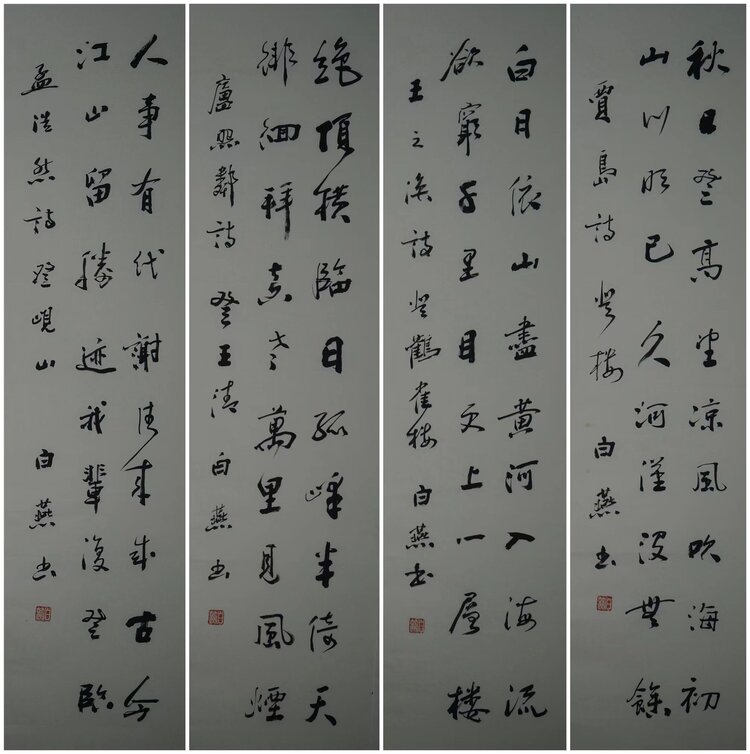 秋日登高望凉風吹海初
山川明已久河漢沒無餘
賈島詩 登楼 白燕书
白日依山盡黄河入海流
欲窮千里目更上一層楼
王之渙詩登鸛雀楼 白燕书
絶頂横臨日孤峰半倚天
徘徊拜真老萬里見風煙
盧照鄰詩 登玉清 白燕书
人事有代謝往來成古今
江山留勝迹我輩復登臨
孟浩然詩登峴山 白燕书